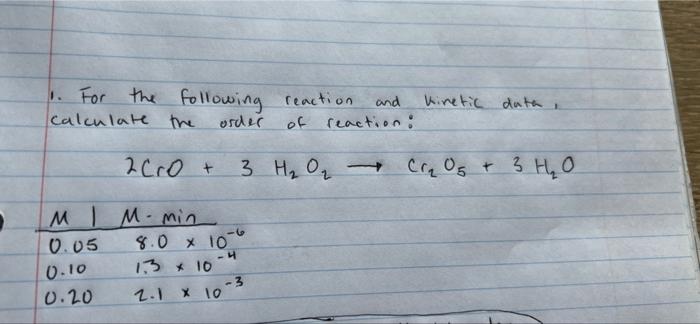 1. For the following reaction and kinetic data,
calculate the order of reaction:
2CrO + 3 H₂O₂ → Cr₂O₅ + 3 H₂O
M | M-min
0.05 8.0 x 10⁻⁶
0.10 1.3 x 10⁻⁴
0.20 2.1 x 10⁻³